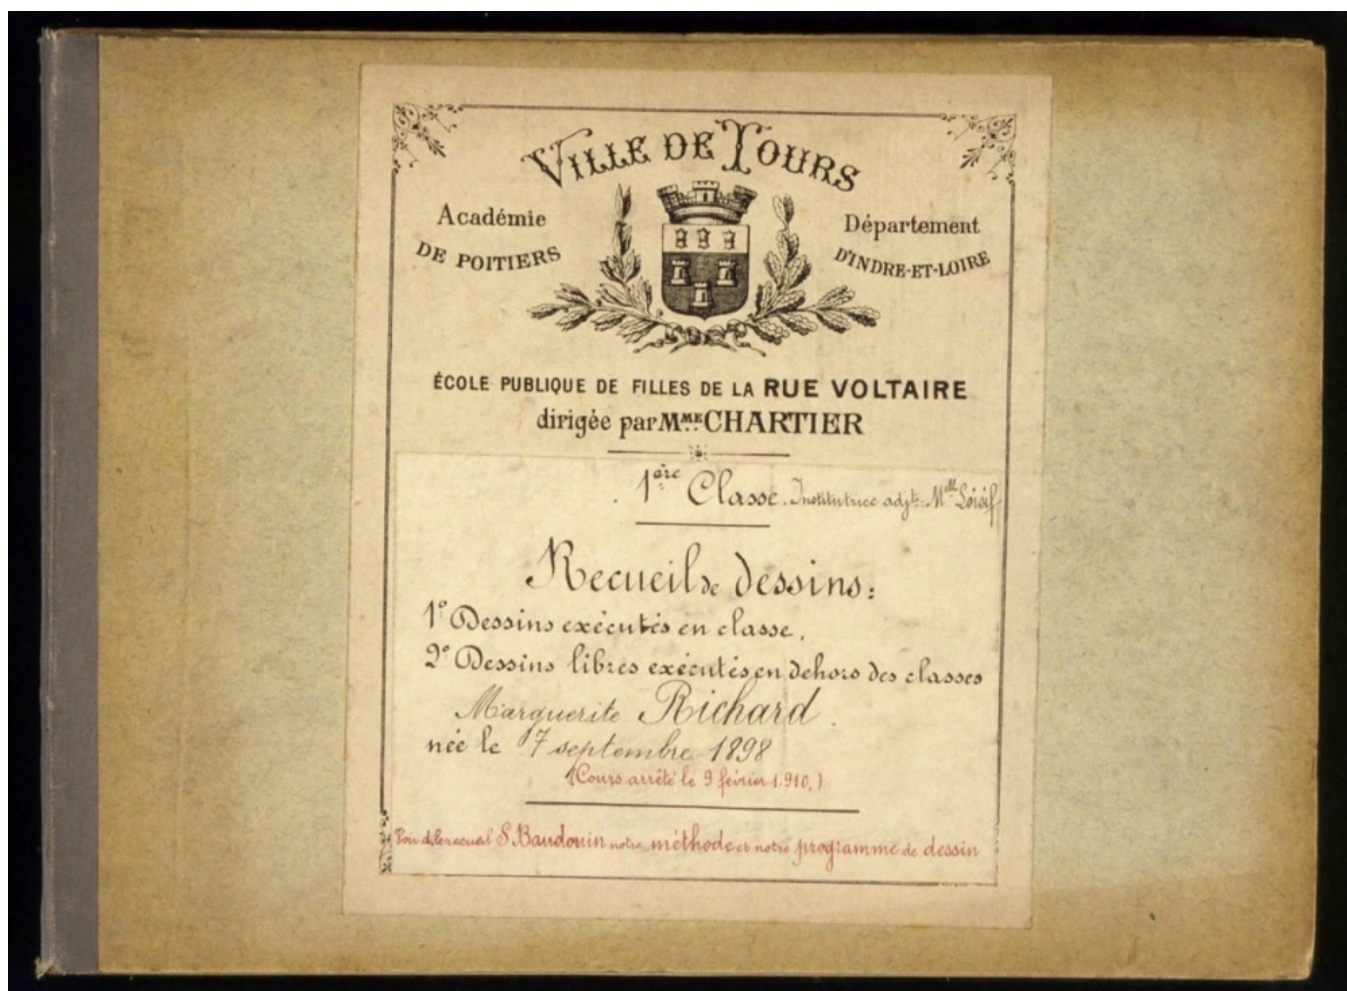 VILLE DE TOURS
Académie
DE POITIERS
Département
D'INDRE-ET-LOIRE
ÉCOLE PUBLIQUE DE FILLES DE LA RUE VOLTAIRE
dirigée par MME CHARTIER
1ère Classe. Institutrice adjte: Mlle
Recueil de dessins:
1º Dessins exécutés en classe.
2º Dessins libres exécutés en dehors des classes
Marguerite Richard.
née le 7 septembre 1898
(Cours arrêté le 9 février 1.910.)
recueil S. Baudouin notre méthode et notre programme de dessin